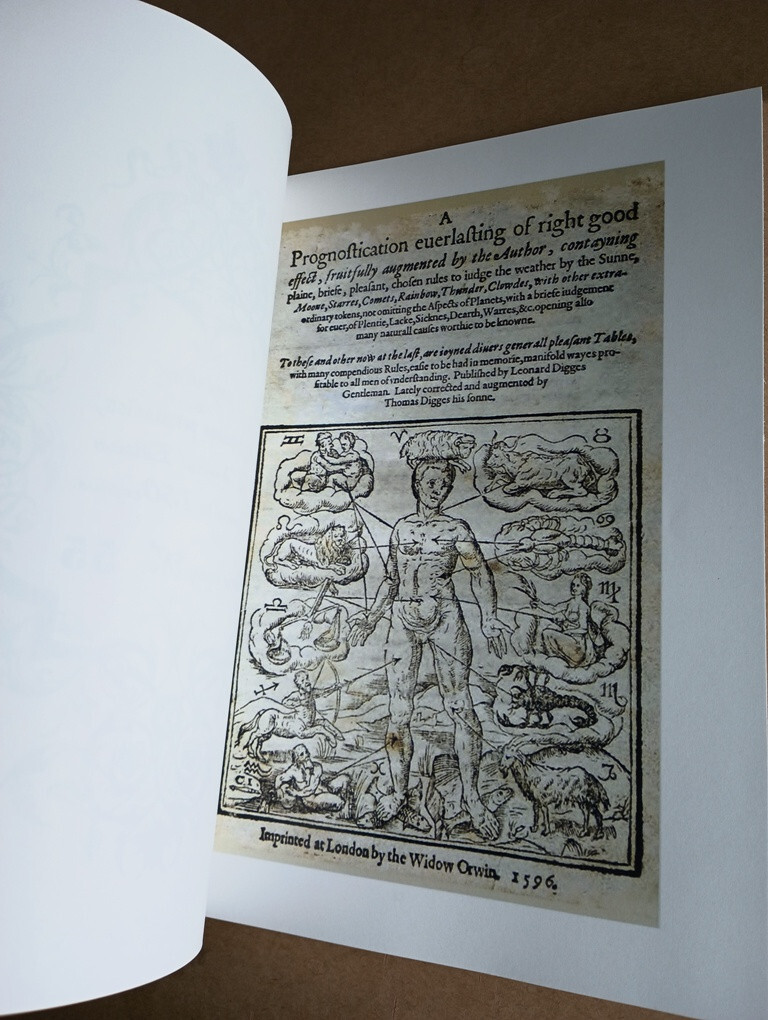 A
Prognoſtication euerlaſting of right good
effect, fruitfully augmented by the Author, contayning
plaine, briefe, pleaſant, choſen rules to iudge the weather by the Sunne,
Moone, Starres, Comets, Rainbow, Thunder, Clowdes, with other extra-
ordinary tokens, not omitting the Aſpects of Planets, with a briefe iudgement
for euer, of Plentie, Lacke, Sicknes, Dearth, Warres, &c. opening alſo
many naturall cauſes worthie to be knowne.
To theſe and other now at the laſt, are ioyned diuers generall pleaſant Tables,
with many compendious Rules, eaſie to be had in memorie, manifold wayes pro-
fitable to all men of vnderſtanding. Publiſhed by Leonard Digges
Gentleman. Lately corrected and augmented by
Thomas Digges his ſonne.
♊ ♈ ♉
♌ ♋
♎ ♍
♐ ♏
♒ ♑
C I
Imprinted at London by the Widow Orwin. 1596.